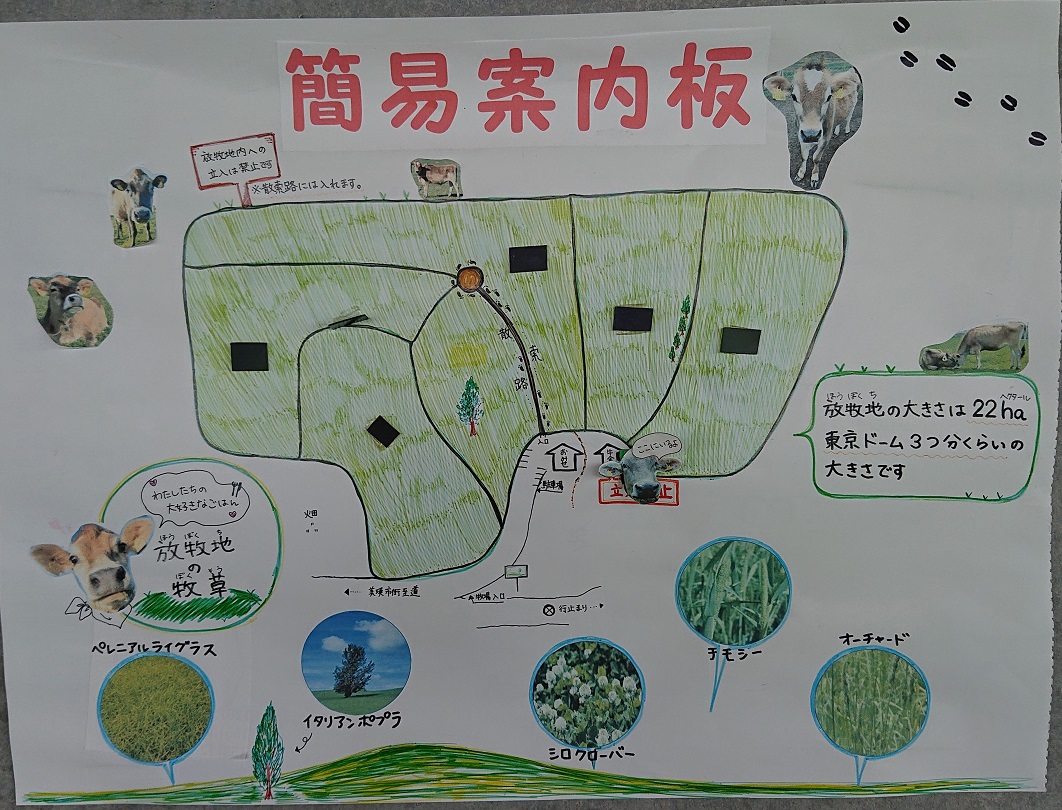 簡易案内板
放牧地内への
立入は禁止です
※散策路には入れます。
散
策
路
入口
お店
ここにいるよ
立
止
駐車場
畑
ほうぼくち
ヘクタール
放牧地の大きさは22ha
東京ドーム3つ分くらいの
大きさです
わたしたちの
大好きなごはん
ほうぼくち
放牧地
の
ぼくそう
牧草
美瑛市街至道
牧場入口
行止まり
ペレニアルライグラス
イタリアンポプラ
シロクローバー
チモシー
オーチャード